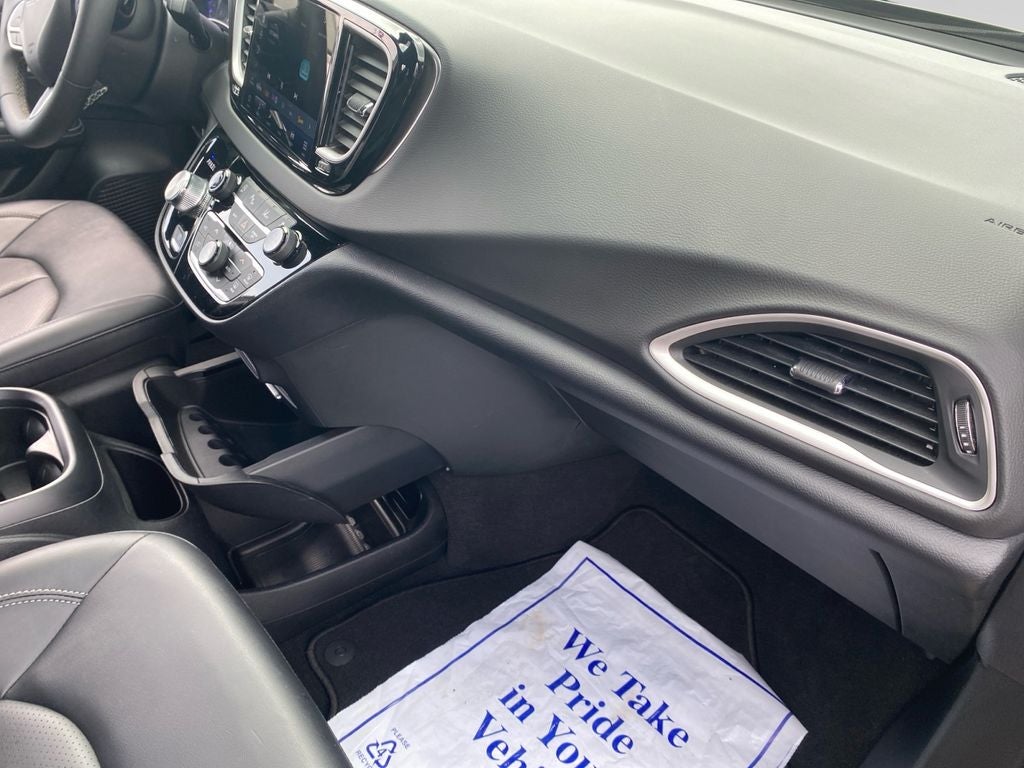 AIRB
We Take
Pride
in You
Veh
PLEASE
RECYC
4